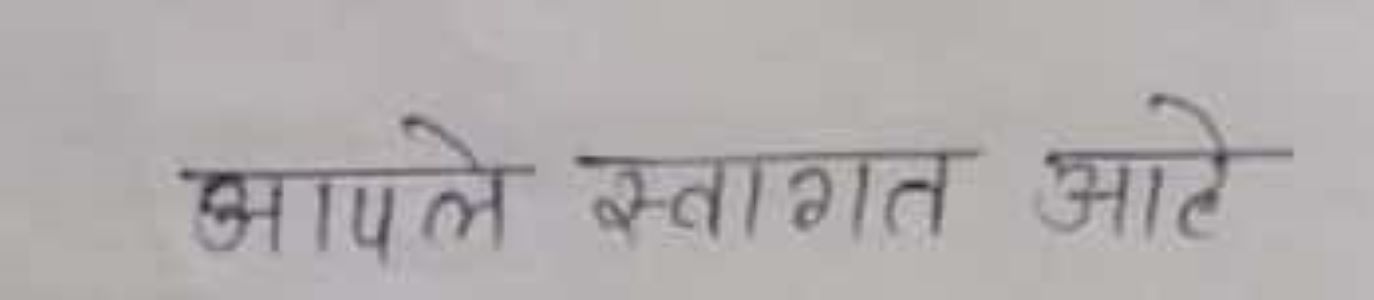 आपले स्वागत आहे